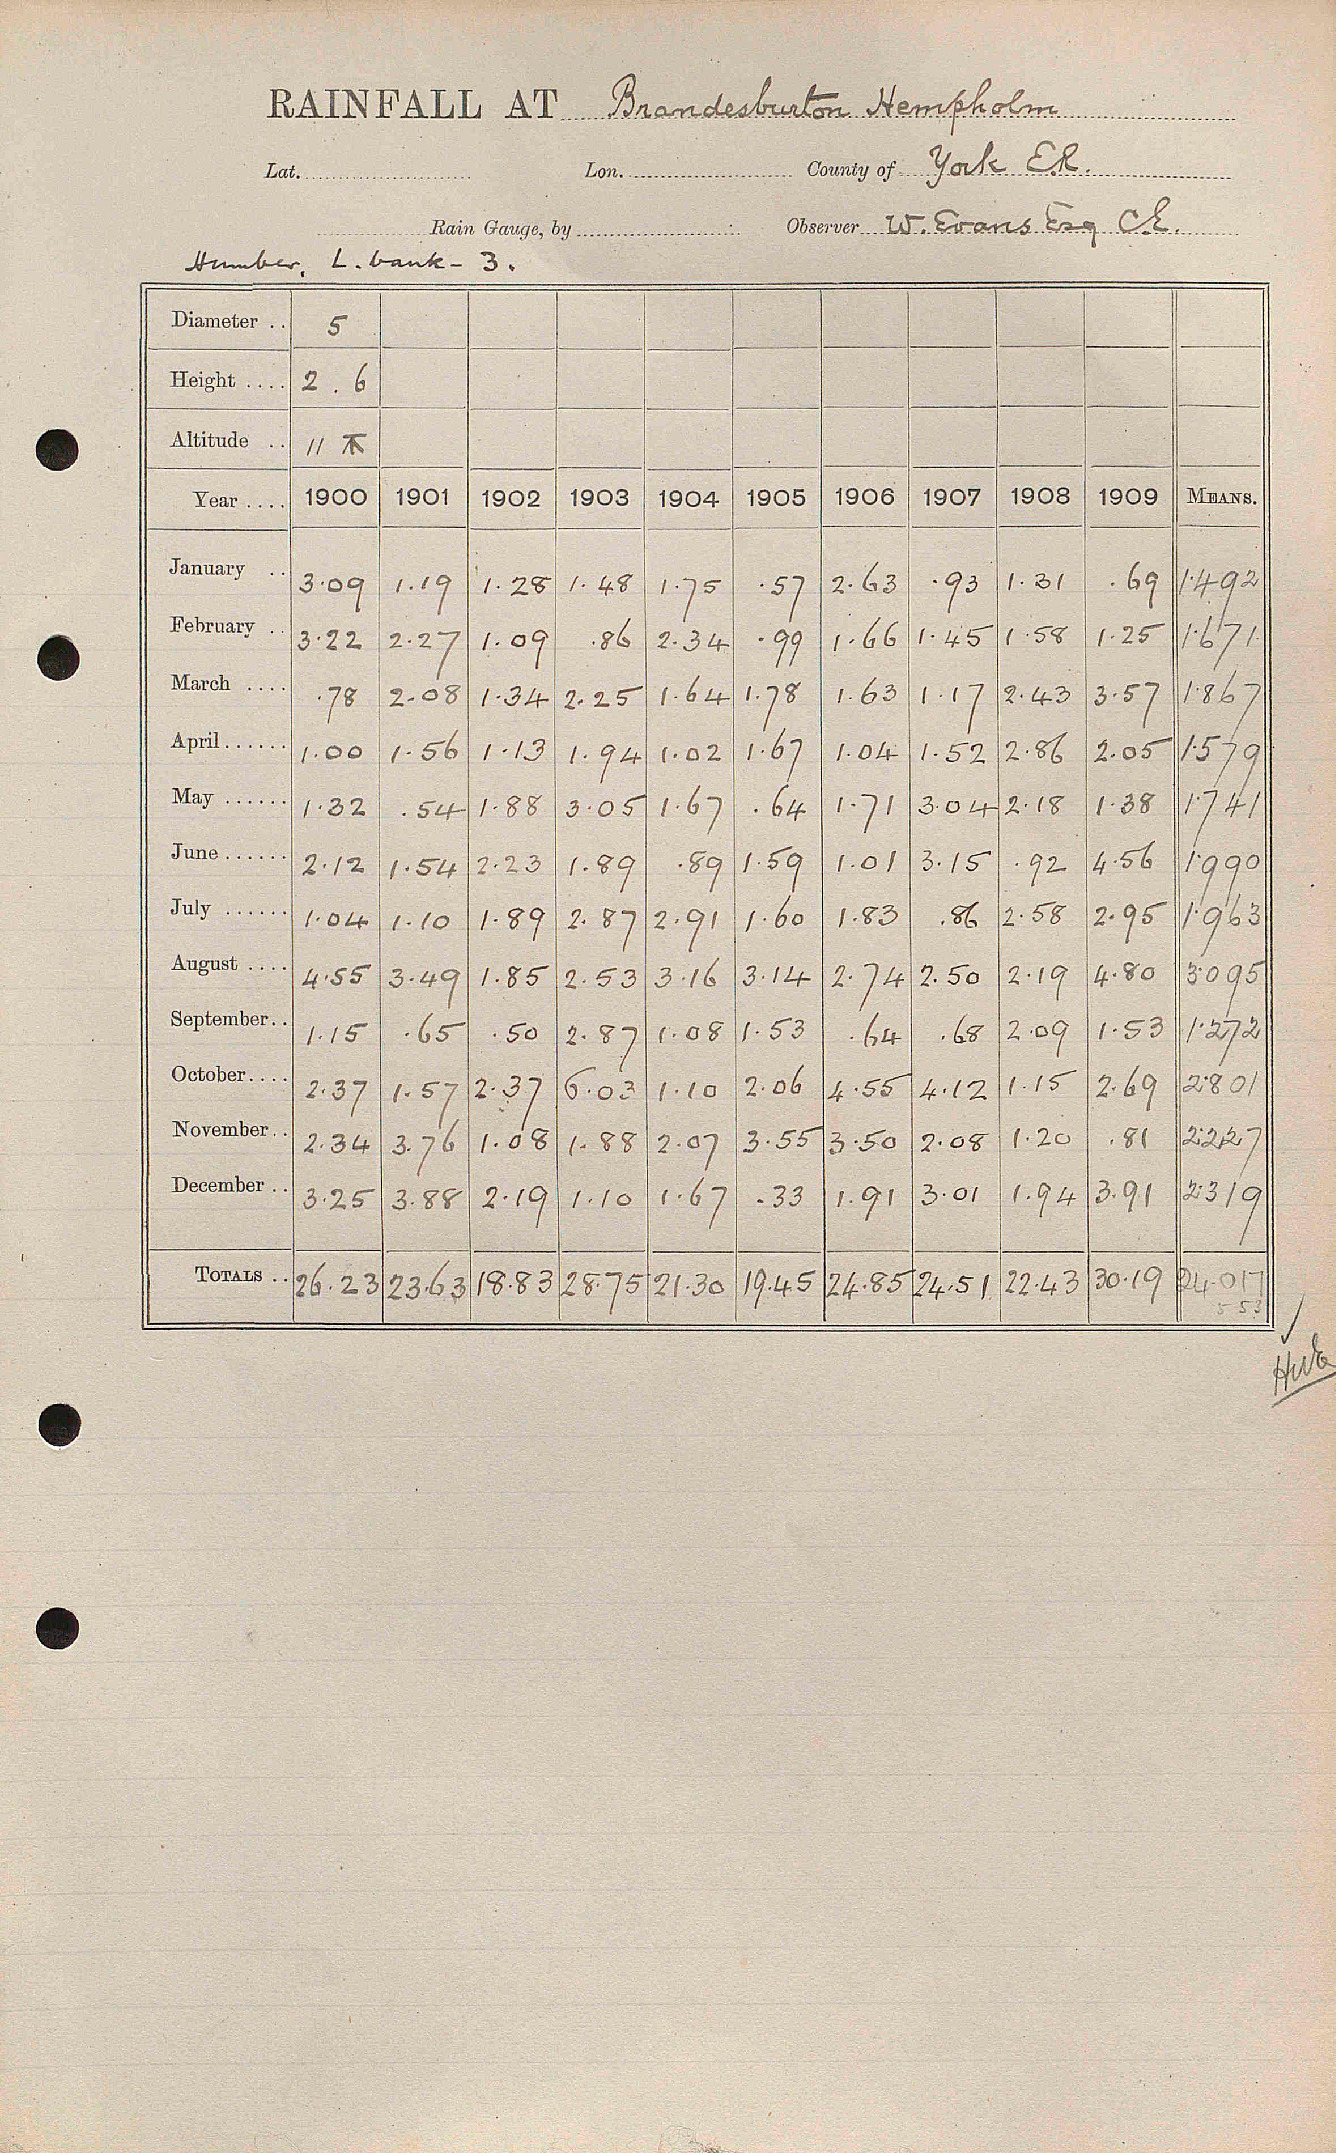 RAINFALL AT Brandesburton Hempholm
Lat. Lon. County of York E.R.
Rain Gauge, by Observer W. Evans Esq C.E.
Humber, L. bank - 3.
Diameter .. 5
Height .... 2 . 6
Altitude .. 11
Year .... 1900 1901 1902 1903 1904 1905 1906 1907 1908 1909 MEANS.
January .. 3.09 1.19 1.28 1.48 1.75 .57 2.63 .93 1.31 .69 1.492
February .. 3.22 2.27 1.09 .86 2.34 .99 1.66 1.45 1.58 1.25 1.671
March .... .78 2.08 1.34 2.25 1.64 1.78 1.63 1.17 2.43 3.57 1.867
April...... 1.00 1.56 1.13 1.94 1.02 1.67 1.04 1.52 2.86 2.05 1.579
May ...... 1.32 .54 1.88 3.05 1.67 .64 1.71 3.04 2.18 1.38 1.741
June...... 2.12 1.54 2.23 1.89 .89 1.59 1.01 3.15 .92 4.56 1.990
July ...... 1.04 1.10 1.89 2.87 2.91 1.60 1.83 .86 2.58 2.95 1.963
August .... 4.55 3.49 1.85 2.53 3.16 3.14 2.74 2.50 2.19 4.80 3.095
September.. 1.15 .65 .50 2.87 1.08 1.53 .64 .68 2.09 1.53 1.272
October.... 2.37 1.57 2.37 6.03 1.10 2.06 4.55 4.12 1.15 2.69 2.801
November.. 2.34 3.76 1.08 1.88 2.07 3.55 3.50 2.08 1.20 .81 2.227
December .. 3.25 3.88 2.19 1.10 1.67 .33 1.91 3.01 1.94 3.91 2.319
TOTALS .. 26.23 23.63 18.83 28.75 21.30 19.45 24.85 24.51 22.43 30.19 24.017